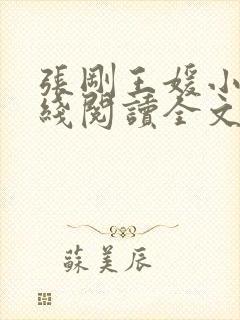 張剛王媛小
綫閱讀全文
蘇美辰